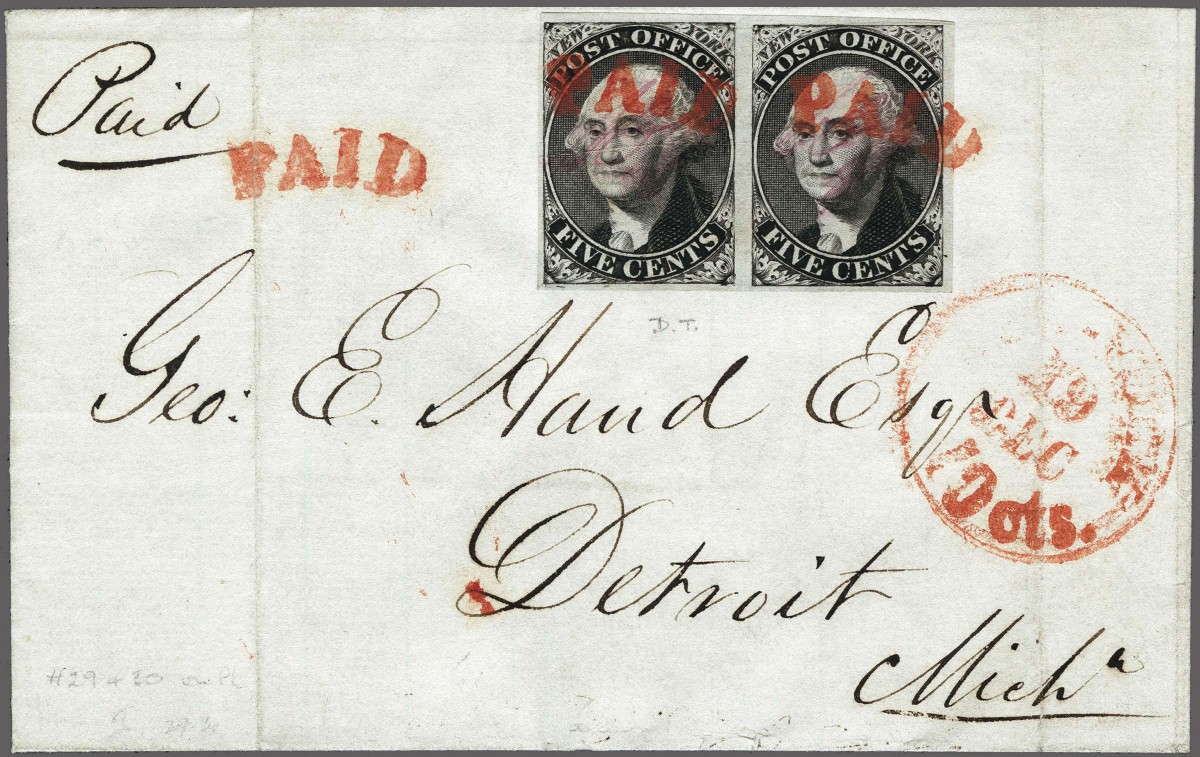 Paid
PAID
NEW YORK
POST OFFICE
PAID
FIVE CENTS
NEW YORK
POST OFFICE
PAID
FIVE CENTS
D.T.
Geo: E. Hand Esqr
19
DEC
10 cts.
Detroit
Mich n
#29 & 30 on Pl